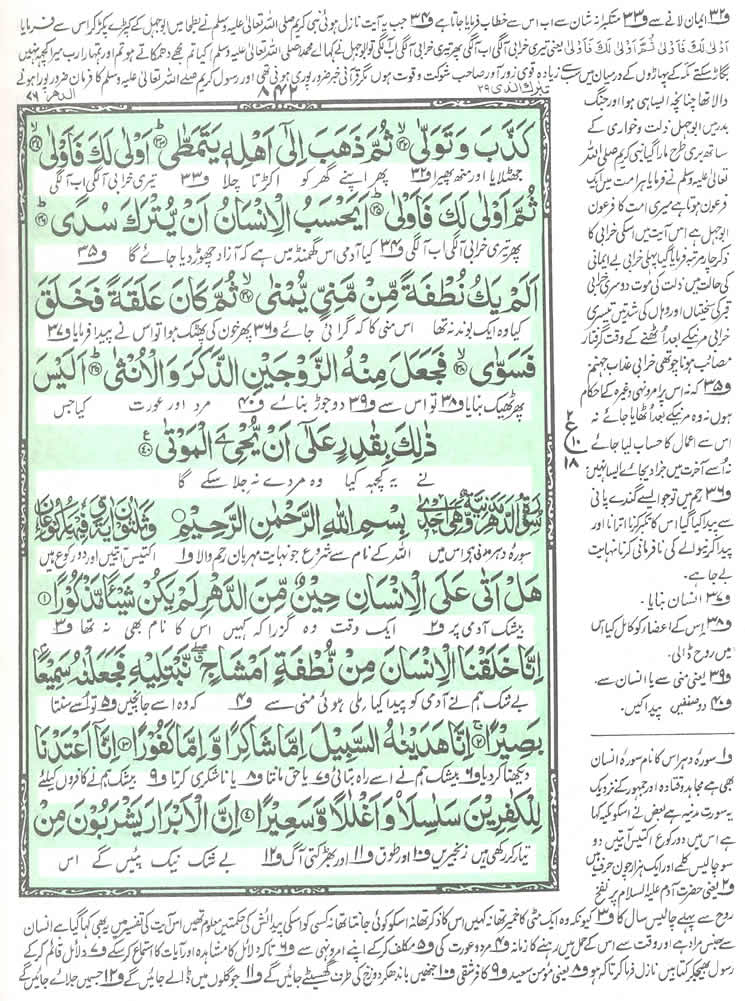 و۳۲ ایمان لانے سے و۳۳ متکبرانہ شان سے اب اس سے خطاب فرمایا جاتا ہے و۳۴ جب یہ آیت نازل ہوئی نبی کریم صلی اللہ تعالیٰ علیہ وسلم نے بطحا میں ابوجہل کے کپڑے پکڑ کر اس سے فرمایا
اَوْلٰى لَكَ فَاَوْلٰى ثُمَّ اَوْلٰى لَكَ فَاَوْلٰى یعنی تیری خرابی آ لگی اب آ لگی پھر تیری خرابی آ لگی اب آ لگی تو ابوجہل نے کہا اے محمد صلی اللہ تعالیٰ علیہ وسلم کیا تم مجھے دھمکاتے ہو تم اور تمہارا رب میرا کچھ نہیں
بگاڑ سکتے مکہ کے پہاڑوں کے درمیان میں سب سے زیادہ قوی زور آور صاحب شوکت و قوت ہوں مگر قرآنی خبر ضرور پوری ہونی تھی اور رسول کریم صلی اللہ تعالیٰ علیہ وسلم کا فرمان ضرور پورا ہونے
تبٰرك الذى ۲۹
۸۴۲
الدهر ۷۶
كَذَّبَ وَتَوَلّٰى ۙ﴿۳۲﴾ ثُمَّ ذَهَبَ اِلٰٓى اَهْلِهٖ يَتَمَطّٰى ؕ﴿۳۳﴾ اَوْلٰى لَكَ فَاَوْلٰى ۙ﴿۳۴﴾
جھٹلایا اور منھ پھیرا و۳۲ پھر اپنے گھر کو اکڑتا چلا و۳۳ تیری خرابی آ لگی اب آ لگی
ثُمَّ اَوْلٰى لَكَ فَاَوْلٰى ؕ﴿۳۵﴾ اَيَحْسَبُ الْاِنْسَانُ اَنْ يُّتْرَكَ سُدًى ؕ﴿۳۶﴾
پھر تیری خرابی آ لگی اب آ لگی و۳۴ کیا آدمی اس گھمنڈ میں ہے کہ آزاد چھوڑ دیا جائے گا و۳۵
اَلَمْ يَكُ نُطْفَةً مِّنْ مَّنِيٍّ يُّمْنٰى ۙ﴿۳۷﴾ ثُمَّ كَانَ عَلَقَةً فَخَلَقَ
کیا وہ ایک بوند نہ تھا اس منی کا کہ گرائی جائے و۳۶ پھر خون کی پھٹک ہوا تو اس نے پیدا فرمایا و۳۷
فَسَوّٰى ۙ﴿۳۸﴾ فَجَعَلَ مِنْهُ الزَّوْجَيْنِ الذَّكَرَ وَالْاُنْثٰى ؕ﴿۳۹﴾ اَلَيْسَ
پھر ٹھیک بنایا و۳۸ تو اس سے و۳۹ دو جوڑ بنائے و۴۰ مرد اور عورت کیا جس
ذٰلِكَ بِقٰدِرٍ عَلٰٓى اَنْ يُّحْيِۦَ الْمَوْتٰى ﴿۴۰﴾
نے یہ کچھ کیا وہ مردے نہ جلا سکے گا
سُوْرَةُ الدَّهْرِ مَدَنِيَّةٌ وَّهِيَ اِحْدٰى بِسْمِ اللّٰهِ الرَّحْمٰنِ الرَّحِيْمِ وَثَلٰثُوْنَ اٰيَةً وَّفِيْهَا رُكُوْعَانِ
سورۂ دہر مدنی ہے اس میں اللہ کے نام سے شروع جو نہایت مہربان رحم والا و۱ اکتیس آیتیں اور دو رکوع ہیں
هَلْ اَتٰى عَلَى الْاِنْسَانِ حِيْنٌ مِّنَ الدَّهْرِ لَمْ يَكُنْ شَيْئًا مَّذْكُوْرًا ﴿۱﴾
بیشک آدمی پر و۲ ایک وقت وہ گزرا کہ کہیں اس کا نام بھی نہ تھا و۳
اِنَّا خَلَقْنَا الْاِنْسَانَ مِنْ نُّطْفَةٍ اَمْشَاجٍ ۖ نَّبْتَلِيْهِ فَجَعَلْنٰهُ سَمِيْعًۢا
بے شک ہم نے آدمی کو پیدا کیا ملی ہوئی منی سے و۴ کہ وہ اسے جانچیں و۵ تو اسے سنتا
بَصِيْرًا ﴿۲﴾ اِنَّا هَدَيْنٰهُ السَّبِيْلَ اِمَّا شَاكِرًا وَّاِمَّا كَفُوْرًا ﴿۳﴾ اِنَّآ اَعْتَدْنَا
دیکھتا کر دیا و۶ بیشک ہم نے اسے راہ بتائی و۷ یا حق مانتا و۸ یا ناشکری کرتا و۹ بیشک ہم نے کافروں کیلئے
لِلْكٰفِرِيْنَ سَلٰسِلَا۠ وَاَغْلٰلًا وَّسَعِيْرًا ﴿۴﴾ اِنَّ الْاَبْرَارَ يَشْرَبُوْنَ مِنْ
تیار کر رکھی ہیں زنجیریں و۱۰ اور طوق و۱۱ اور بھڑکتی آگ و۱۲ بے شک نیک پئیں گے اس
والا تھا چنانچہ ایسا ہی ہوا اور جنگ
بدر میں ابوجہل ذلت و خواری کے
ساتھ بری طرح مارا گیا نبی کریم صلی اللہ
تعالیٰ علیہ وسلم نے فرمایا ہر امت میں ایک
فرعون ہوتا ہے میری امت کا فرعون
ابوجہل ہے اس آیت میں اسکی خرابی کا
ذکر چار مرتبہ فرمایا گیا پہلی خرابی بے ایمانی
کی حالت میں ذلت کی موت دوسری خرابی
قبر کی سختیاں اور وہاں کی شدتیں تیسری
خرابی مرنیکے بعد اٹھنے کے وقت گرفتار
مصائب ہونا چوتھی خرابی عذاب جہنم
و۳۵ کہ نہ اس پر امر و نہی وغیرہ کے احکام
ہوں نہ وہ مرنیکے بعد اٹھایا جائے نہ
اس سے اعمال کا حساب لیا جائے
نہ اُسے آخرت میں جزا دیجائے ایسا نہیں
و۳۶ رحم میں تو جو ایسے گندے پانی
سے پیدا کیا گیا اس کا تکبر کرنا اترانا اور
پیدا کرنیوالے کی نافرمانی کرنا نہایت
بے جا ہے۔
و۳۷ انسان بنایا۔
و۳۸ اس کے اعضا کو کامل کیا اس
میں روح ڈالی۔
و۳۹ یعنی منی سے یا انسان سے۔
و۴۰ دو صنفیں پیدا کیں۔
۲
ع
۱۰
۱۸
و۱ سورۂ دہر اس کا نام سورۂ انسان
بھی ہے مجاہد و قتادہ اور جمہور کے نزدیک
یہ سورت مدنیہ ہے بعض نے اسکو مکیہ کہا
ہے اس میں دو رکوع اکتیس آیتیں دو
سو چالیس کلمے اور ایک ہزار چون حرف ہیں
و۲ یعنی حضرت آدم علیہ السلام پر نفخ
روح سے پہلے چالیس سال کا و۳ کیونکہ وہ ایک مٹی کا خمیر تھا نہ کہیں اس کا ذکر تھا نہ اسکو کوئی جانتا تھا نہ کسی کو اسکی پیدائش کی حکمتیں معلوم تھیں اس آیت کی تفسیر میں یہ بھی کہا گیا ہے کہ انسان
سے جنس مراد ہے اور وقت سے اس کے حمل میں رہنے کا زمانہ و۴ مرد و عورت کی و۵ مکلف کر کے اپنے امر و نہی سے و۶ تاکہ دلائل کا مشاہدہ اور آیات کا استماع کر سکے و۷ دلائل قائم کر کے
رسول بھیجکر کتابیں نازل فرما کر تاکہ ہو و۸ یعنی مؤمن سعید و۹ کافر شقی و۱۰ جنھیں باندھ کر دوزخ کی طرف گھسیٹے جائیں گے و۱۱ جو گلوں میں ڈالے جائیں گے و۱۲ جسمیں جلائے جائیں گے